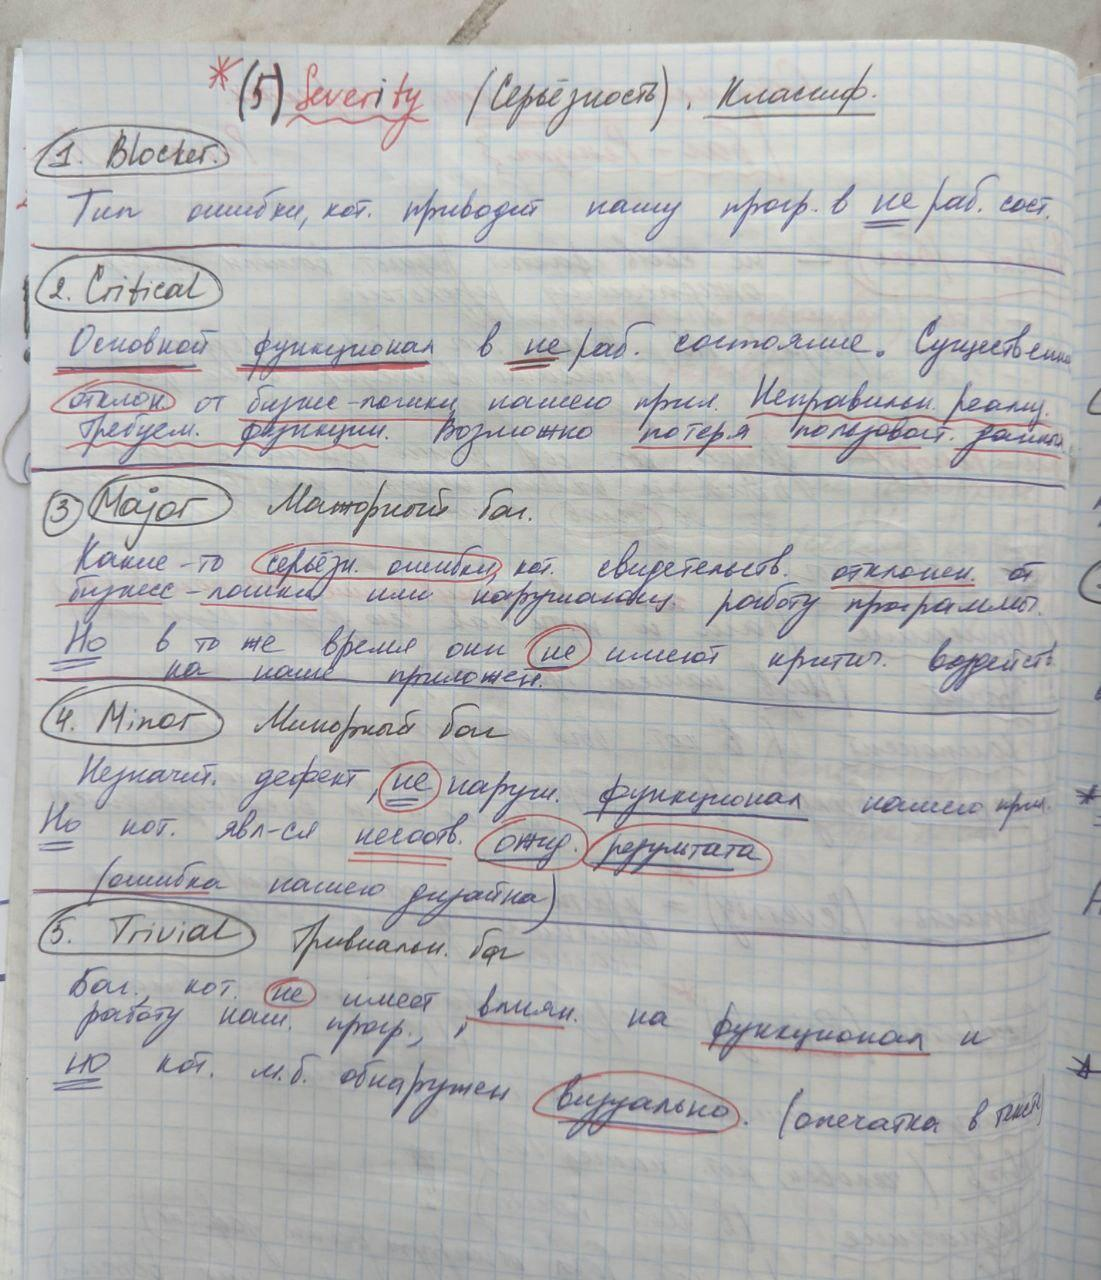 *(5) Severity (Серьёзность). Классиф.
1. Blocker.
Тип ошибки, кот. приводит нашу прогр. в не раб. сост.
2. Critical
Основной функционал в не раб. состояние. Существенно
отклон. от бизнес-логики нашего прил. Неправильн. реализ.
требуем. функции. Возможно потеря пользоват. данных
3 Major Мажорный баг.
Какие-то серьёзн. ошибки, кот. свидетельств. отклонен от
бизнес-логики или нарушающ работу программы.
Но в то же время они не имеют критич. воздейств
на наше приложен.
4. Minor Минорный баг
Незначит. дефект, не наруш. функционал нашего прил.
Но кот. явл-ся несоотв. ожид. результата
(ошибка нашего дизайна)
5. Trivial Тривиальн. баг
Баг, кот. не имеет влиян. на функционал и
работу наш. прогр.,
но кот. м.б. обнаружен визуально. (опечатка в тексте)